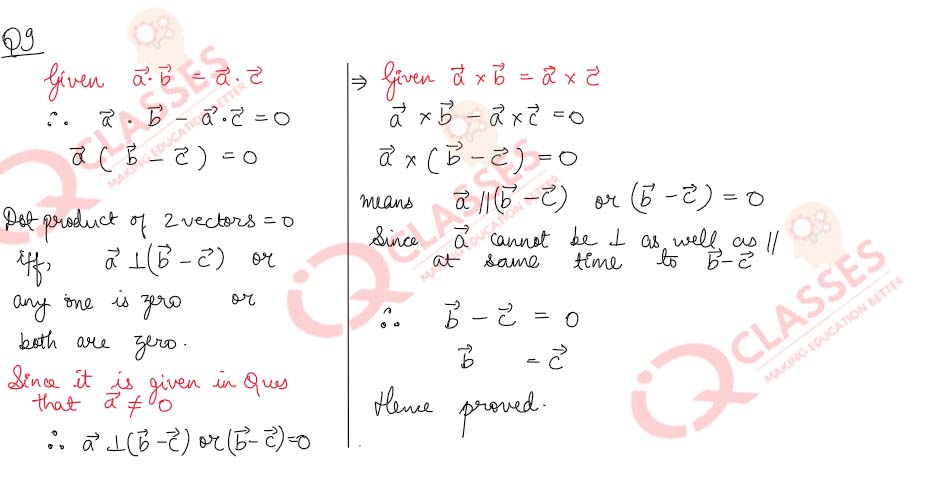 Q9
Given a⃗·b⃗ = a⃗·c⃗
∴ a⃗ · b⃗ − a⃗·c⃗ = 0
a⃗ ( b⃗ − c⃗ ) = 0
Dot product of 2 vectors = 0
iff, a⃗ ⊥ (b⃗ − c⃗) or
any one is zero or
both are zero.
Since it is given in Ques
that a⃗ ≠ 0
∴ a⃗ ⊥ (b⃗ − c⃗) or (b⃗ − c⃗) = 0
⇒ Given a⃗ × b⃗ = a⃗ × c⃗
a⃗ × b⃗ − a⃗ × c⃗ = 0
a⃗ × ( b⃗ − c⃗ ) = 0
means a⃗ // (b⃗ − c⃗) or (b⃗ − c⃗) = 0
Since a⃗ cannot be ⊥ as well as //
at same time to b⃗ − c⃗
∴ b⃗ − c⃗ = 0
b⃗ = c⃗
Hence proved.
IQ CLASSES
MAKING EDUCATION BETTER
IQ CLASSES
MAKING EDUCATION BETTER
IQ CLASSES
MAKING EDUCATION BETTER